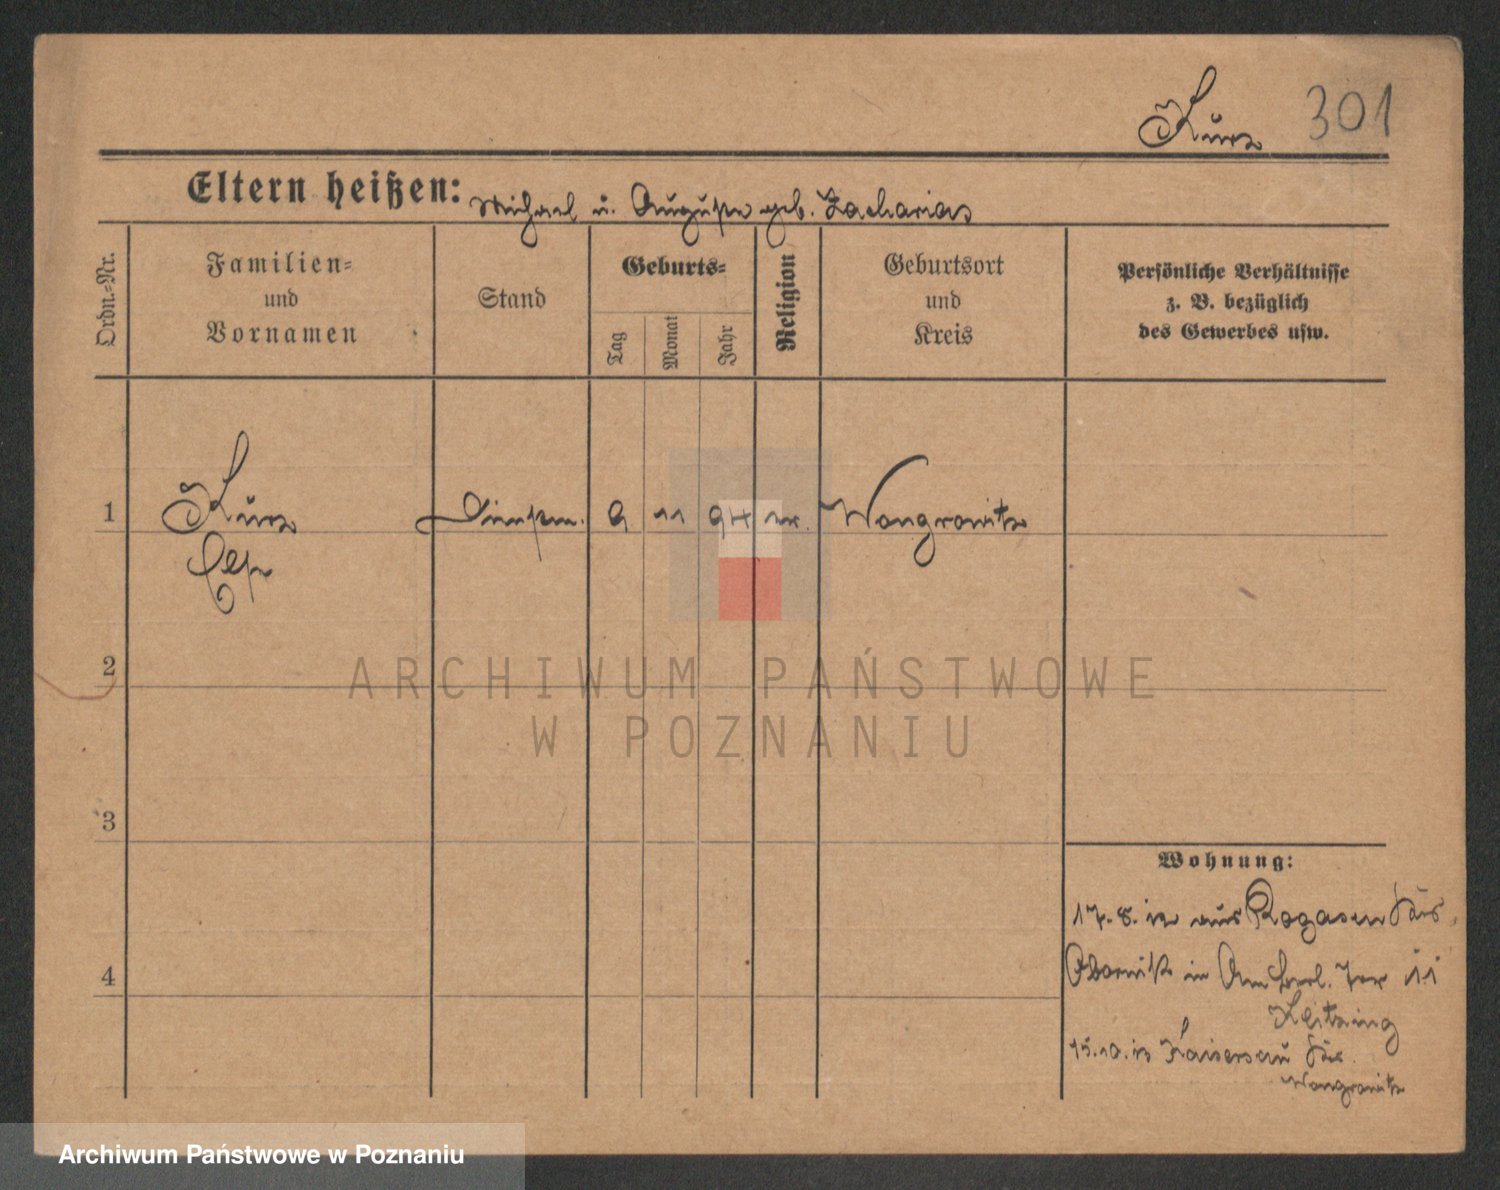 Kurz 301
Eltern heißen: Michael u. Auguste geb. Zacharias
Ordn.-Nr.
Familien-
und
Vornamen
Stand
Geburts-
Tag
Monat
Jahr
Religion
Geburtsort
und
Kreis
Persönliche Verhältnisse
z. B. bezüglich
des Gewerbes usw.
1 Kurz 9 11 94 Wongrowitz
2
3
4
Wohnung:
17.8. aus Rogasen
Obornik in Am Berl. Tor 11
15.10. Kaisersau
Wongrowitz
ARCHIWUM PAŃSTWOWE
W POZNANIU
Archiwum Państwowe w Poznaniu